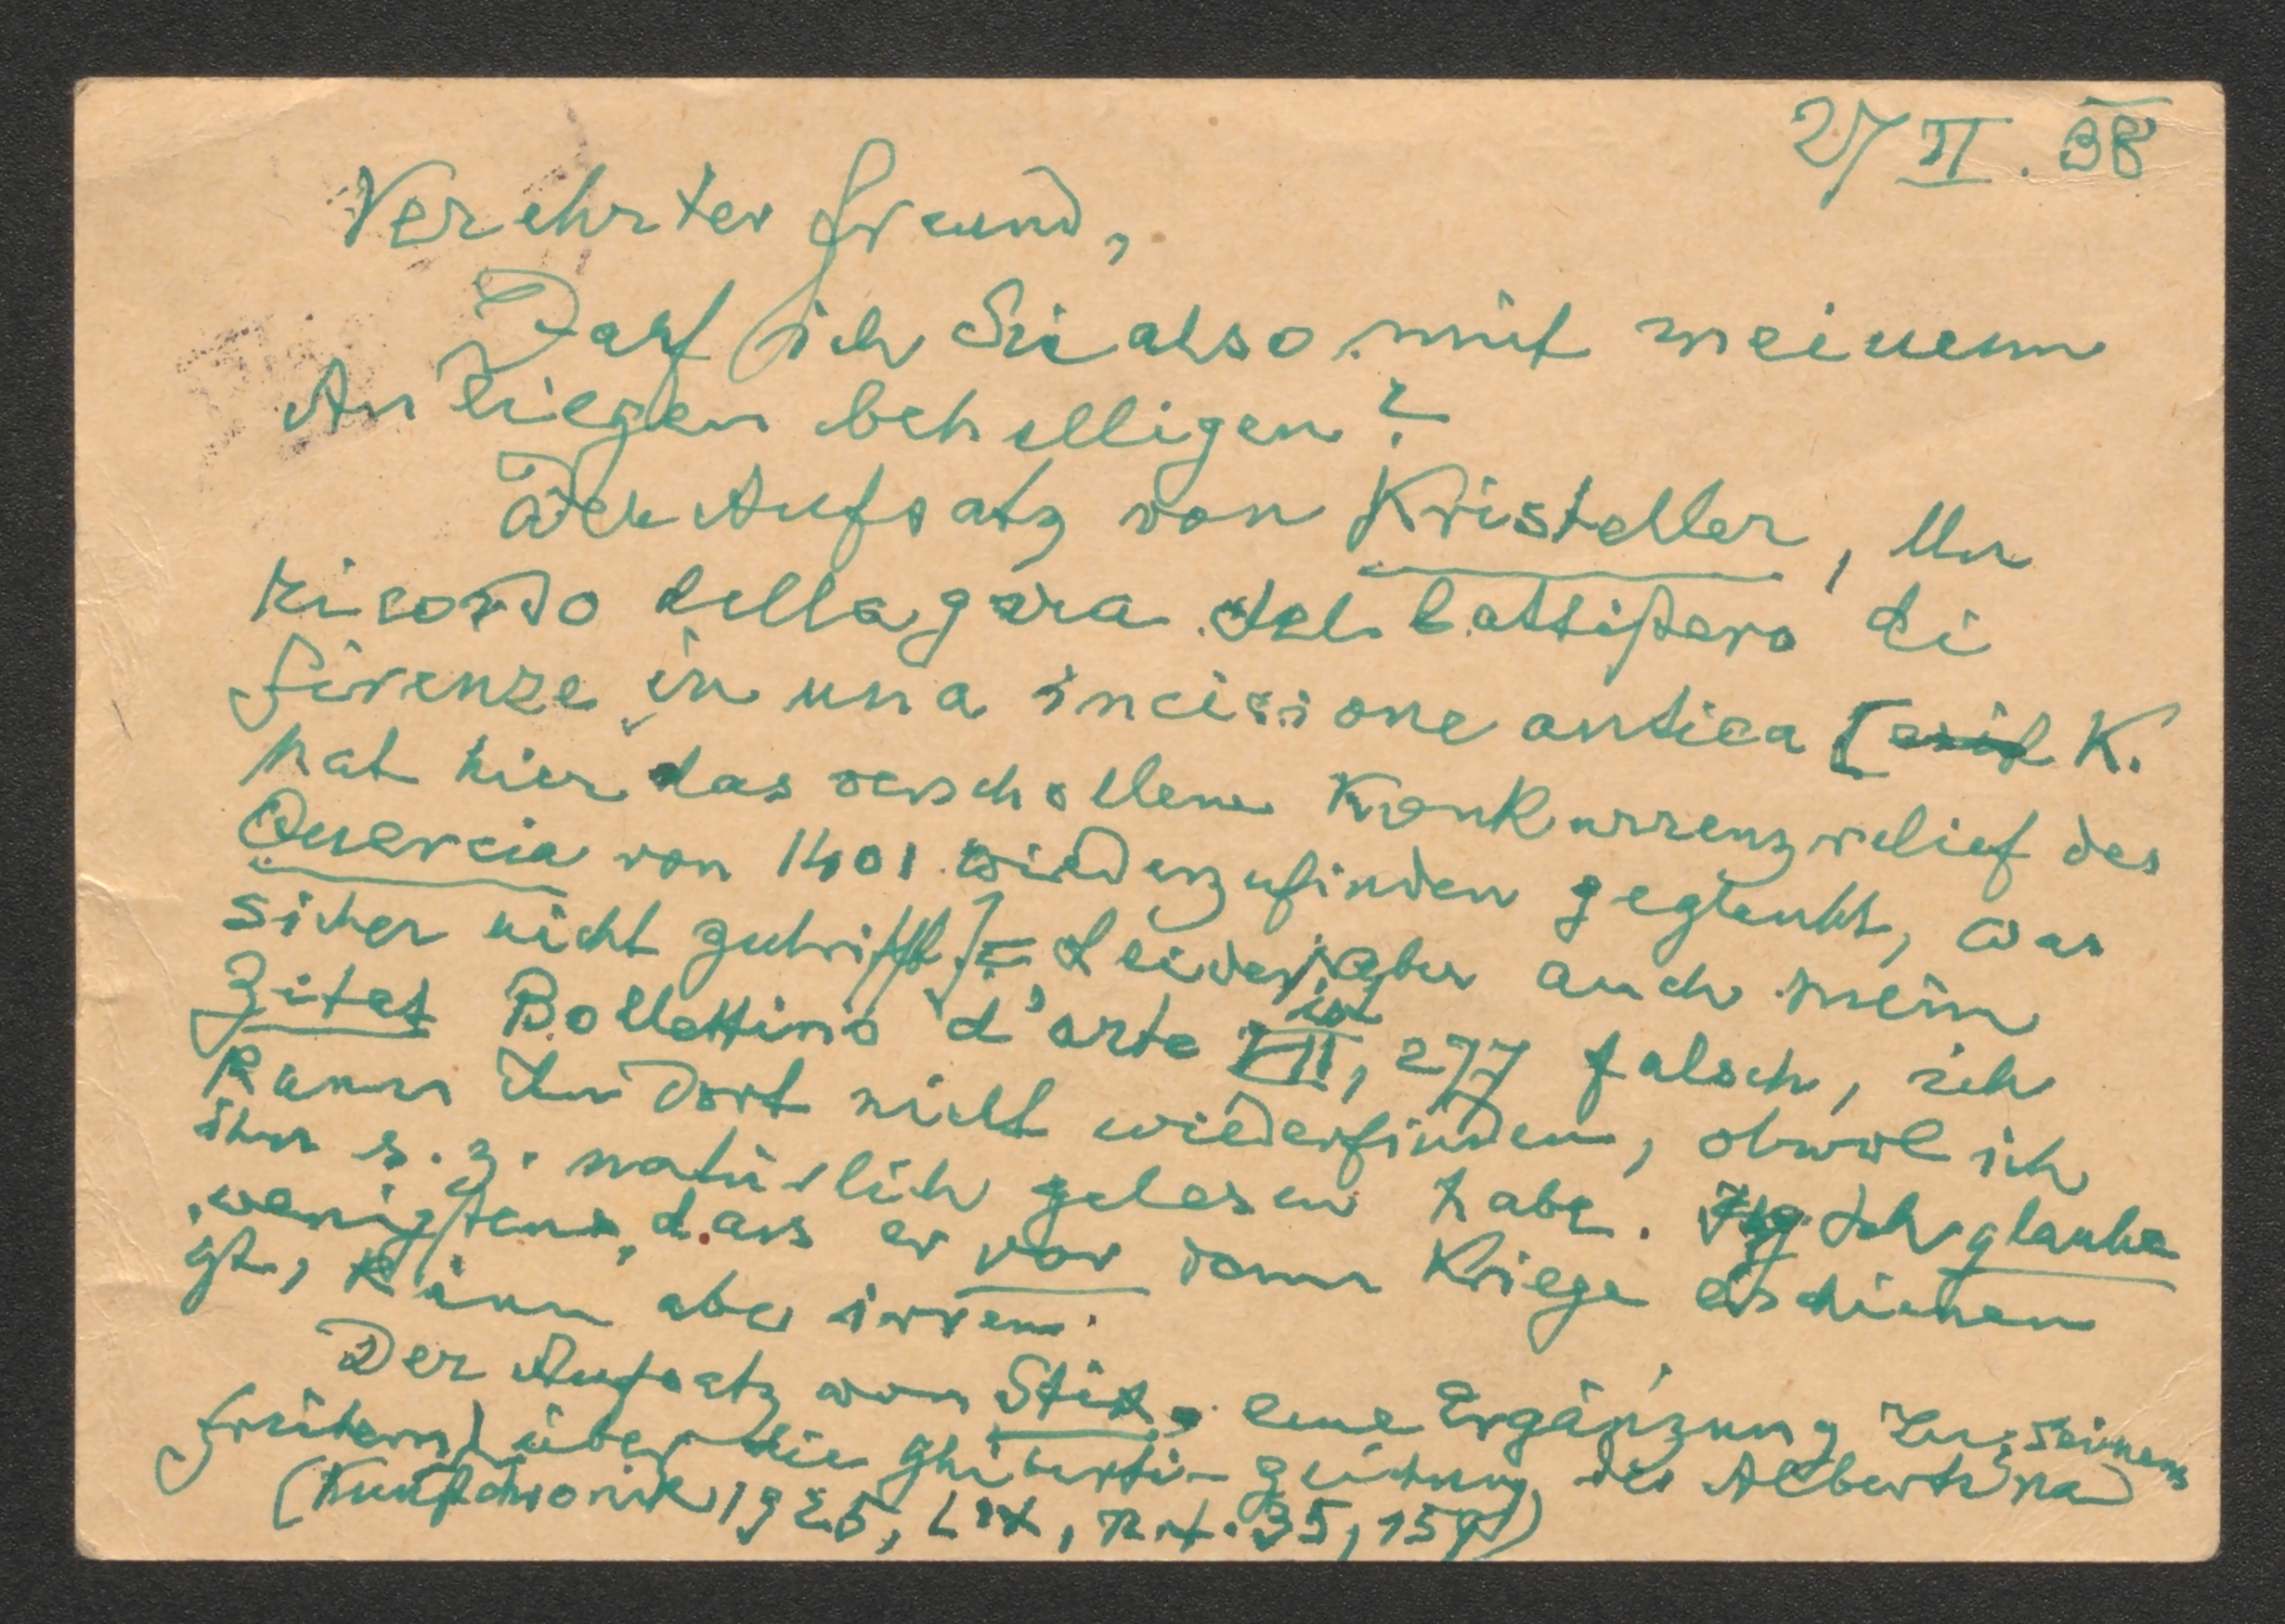 27 II. 38
Verehrter Freund,
Darf ich Sie also mit meinem
Anliegen behelligen?
Der Aufsatz von Kristeller, Un
ricordo della gara del battistero di
Firenze in una incisione antica [ K.
hat hier das verschollene Konkurrenzrelief des
Quercia von 1401 wiederzufinden geglaubt, was
sicher nicht zutrifft] = Leider aber ist auch mein
Zitat Bollettino d'arte VII, 277 falsch, ich
kann ihn dort nicht wiederfinden, obwol ich
ihn s. z. natürlich gelesen habe. Ich glaube
wenigstens, dass er vor dem Kriege erschienen
ist, kann aber irren.
Der Aufsatz von Stix, eine Ergänzung zu seinem
frühern) über die Ghiberti-Zeichnung der Albertina
(Kunstchronik 1925, LIX, Nr. 35,